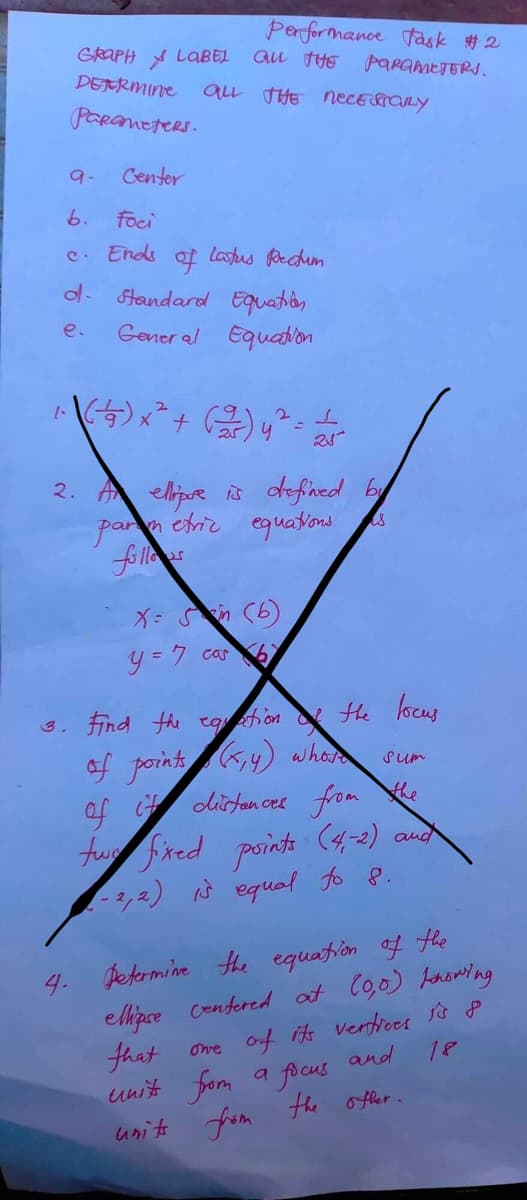 Performance Task # 2
GRAPH & LABEL ALL THE PARAMETERS.
DETERMINE ALL THE NECESSARY
PARAMETERS.
a- Center
b. Foci
c. Ends of Lastus Rectum
d- Standard Equation
e. General Equation
1. (1/9) x² + (9/25) y² = 1/25
2. An ellipse is defined by
param etric equations as
follows
x = 5 sin (b)
y = 7 cos (b)
3. Find the equation of the locus
of points (x,y) whose sum
of it distances from the
two fixed points (4,-2) and
(-2,2) is equal to 8.
4. Determine the equation of the
ellipse centered at (0,0) knowing
that one of its vertices is 8
unit from a focus and 18
units from the other.